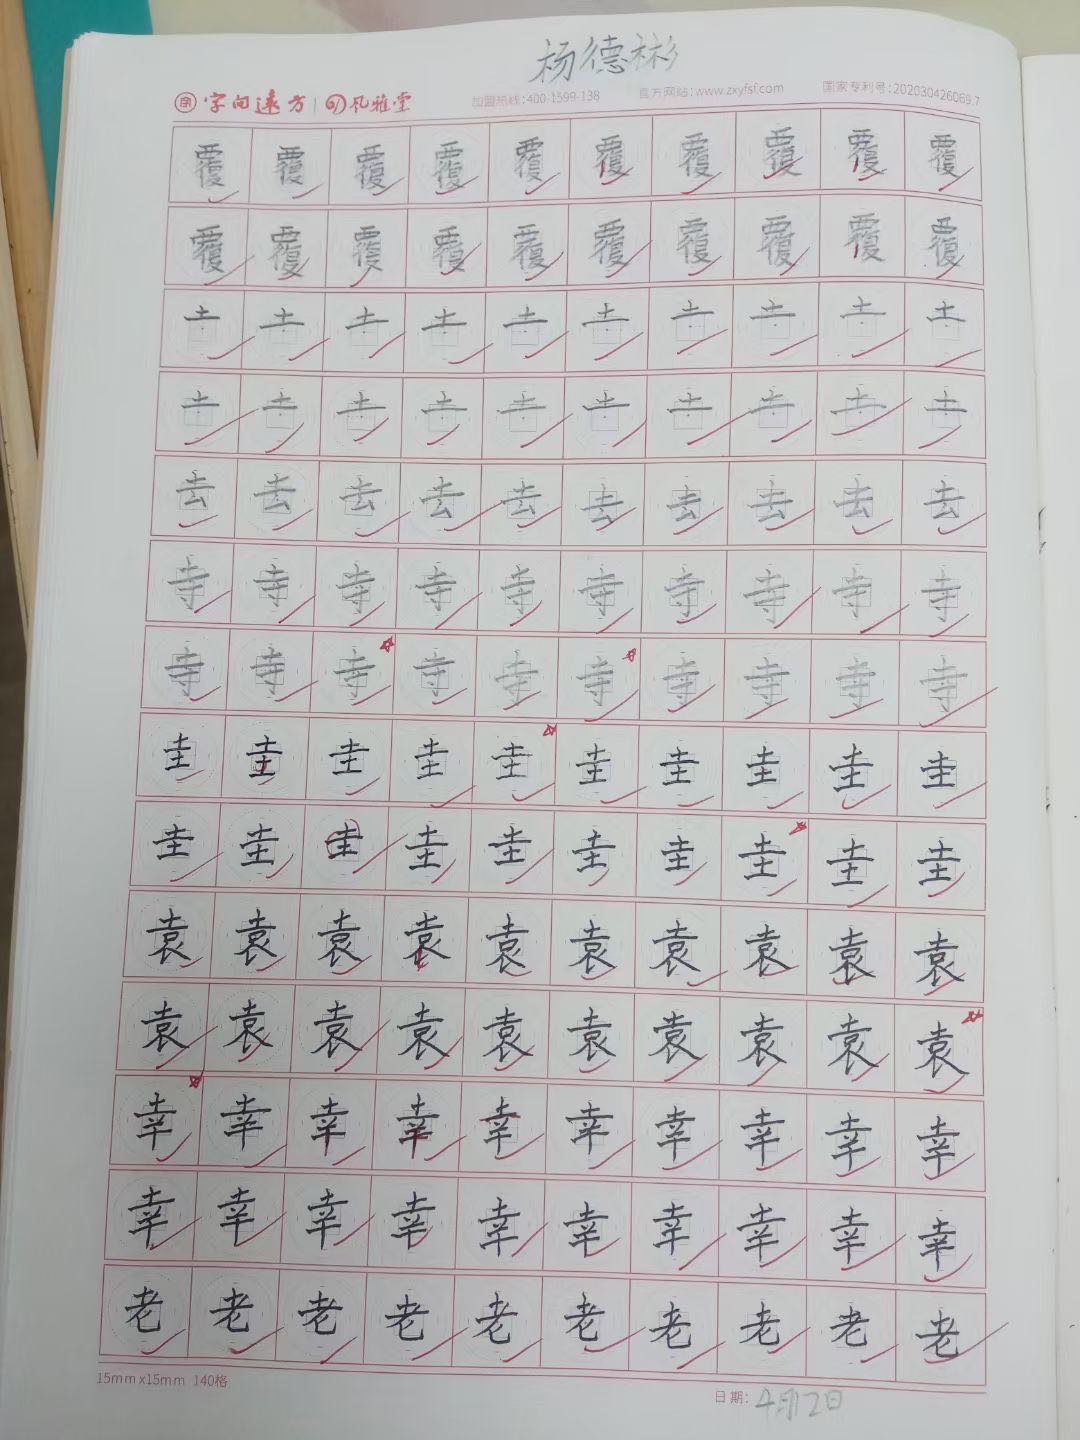 杨德彬
字向远方 风雅堂 加盟热线:400-1599-138 官方网站:www.zxyfsf.com 国家专利号:202030426069.7
覆覆覆覆覆覆覆覆覆覆
覆覆覆覆覆覆覆覆覆覆
土土土土土土土土土土
土土土土土土土土土土
去去去去去去去去去去
寺寺寺寺寺寺寺寺寺寺
寺寺寺寺寺寺寺寺寺寺
圭圭圭圭圭圭圭圭圭圭
圭圭圭圭圭圭圭圭圭圭
袁袁袁袁袁袁袁袁袁袁
袁袁袁袁袁袁袁袁袁袁
幸幸幸幸幸幸幸幸幸幸
幸幸幸幸幸幸幸幸幸幸
老老老老老老老老老老
15mm x15mm 140格
日期: 4月12日